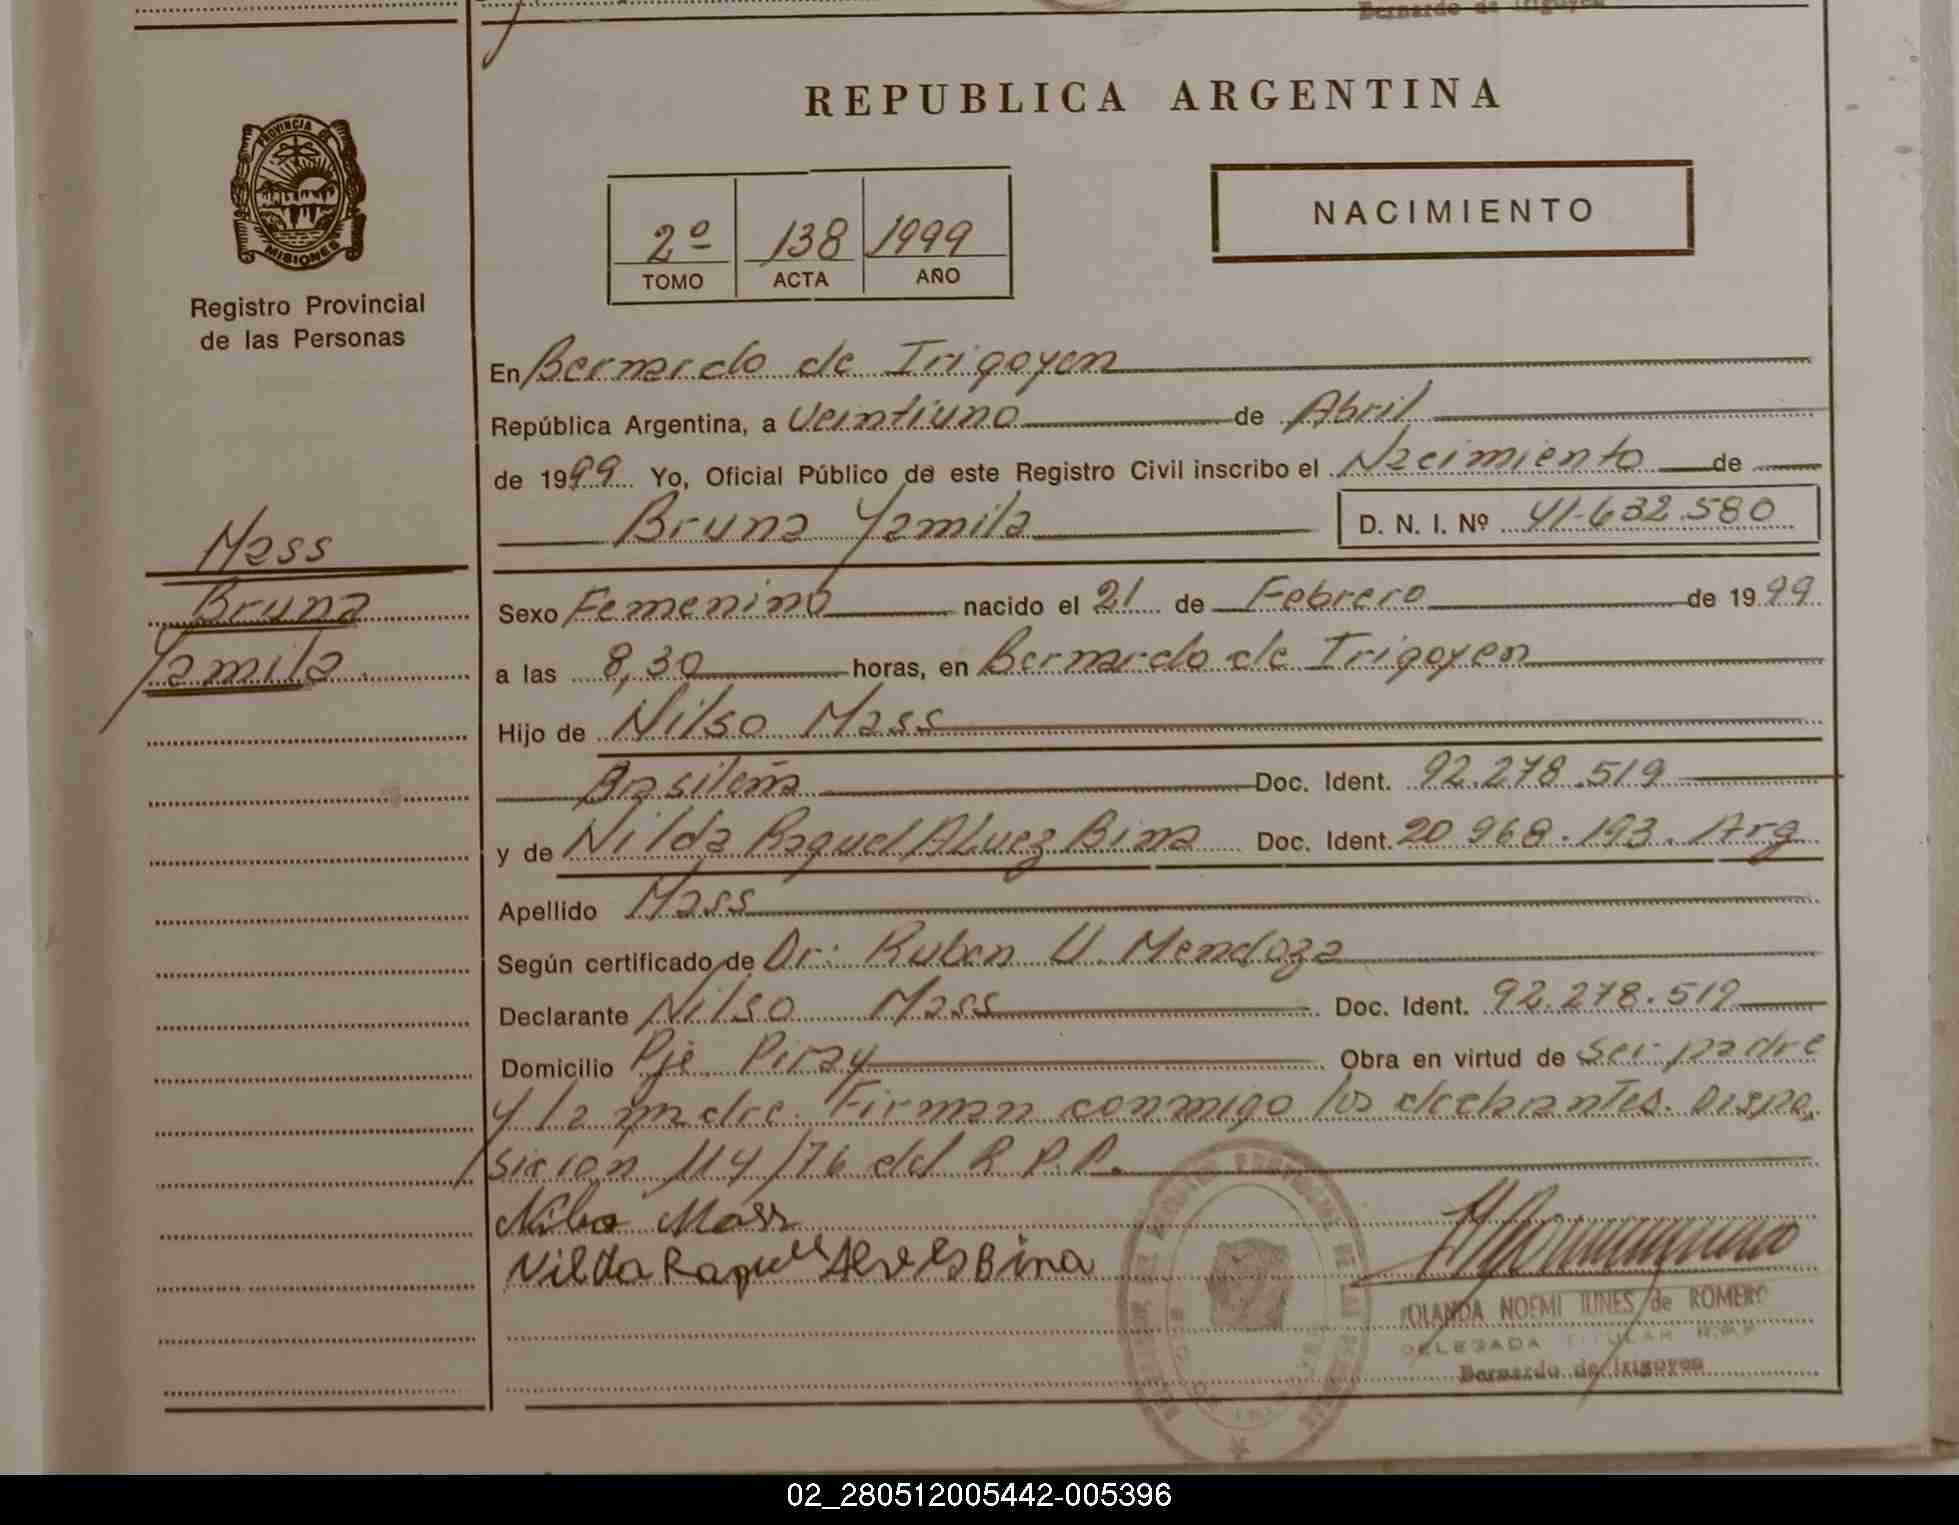 Bernardo de Irigoyen
REPUBLICA ARGENTINA
PROVINCIA DE
MISIONES
Registro Provincial
de las Personas
2º 138 1999
TOMO ACTA AÑO
NACIMIENTO
En Bernardo de Irigoyen
República Argentina, a Veintiuno de Abril
de 1999 Yo, Oficial Público de este Registro Civil inscribo el Nacimiento de
Bruna Yamila D. N. I. Nº 41.632.580
Mass
Bruna
Yamila
Sexo Femenino nacido el 21 de Febrero de 1999
a las 8,30 horas, en Bernardo de Irigoyen
Hijo de Nilso Mass
Brasileña Doc. Ident. 92.278.519
y de Nilda Raquel Alvez Bina Doc. Ident. 20.968.193. Arg
Apellido Mass
Según certificado de Dr: Ruben U. Mendoza
Declarante Nilso Mass Doc. Ident. 92.278.519
Domicilio Pje. Piray Obra en virtud de ser padre
y la madre. Firman conmigo los declarantes. Dispo,
sición 114/76 del R.P.P.
Nilso Mass
Nilda Raquel Alves Bina
YOLANDA NOEMI IUNES de ROMERO
DELEGADA TITULAR R.P.P
Bernardo de Irigoyen
02_280512005442-005396